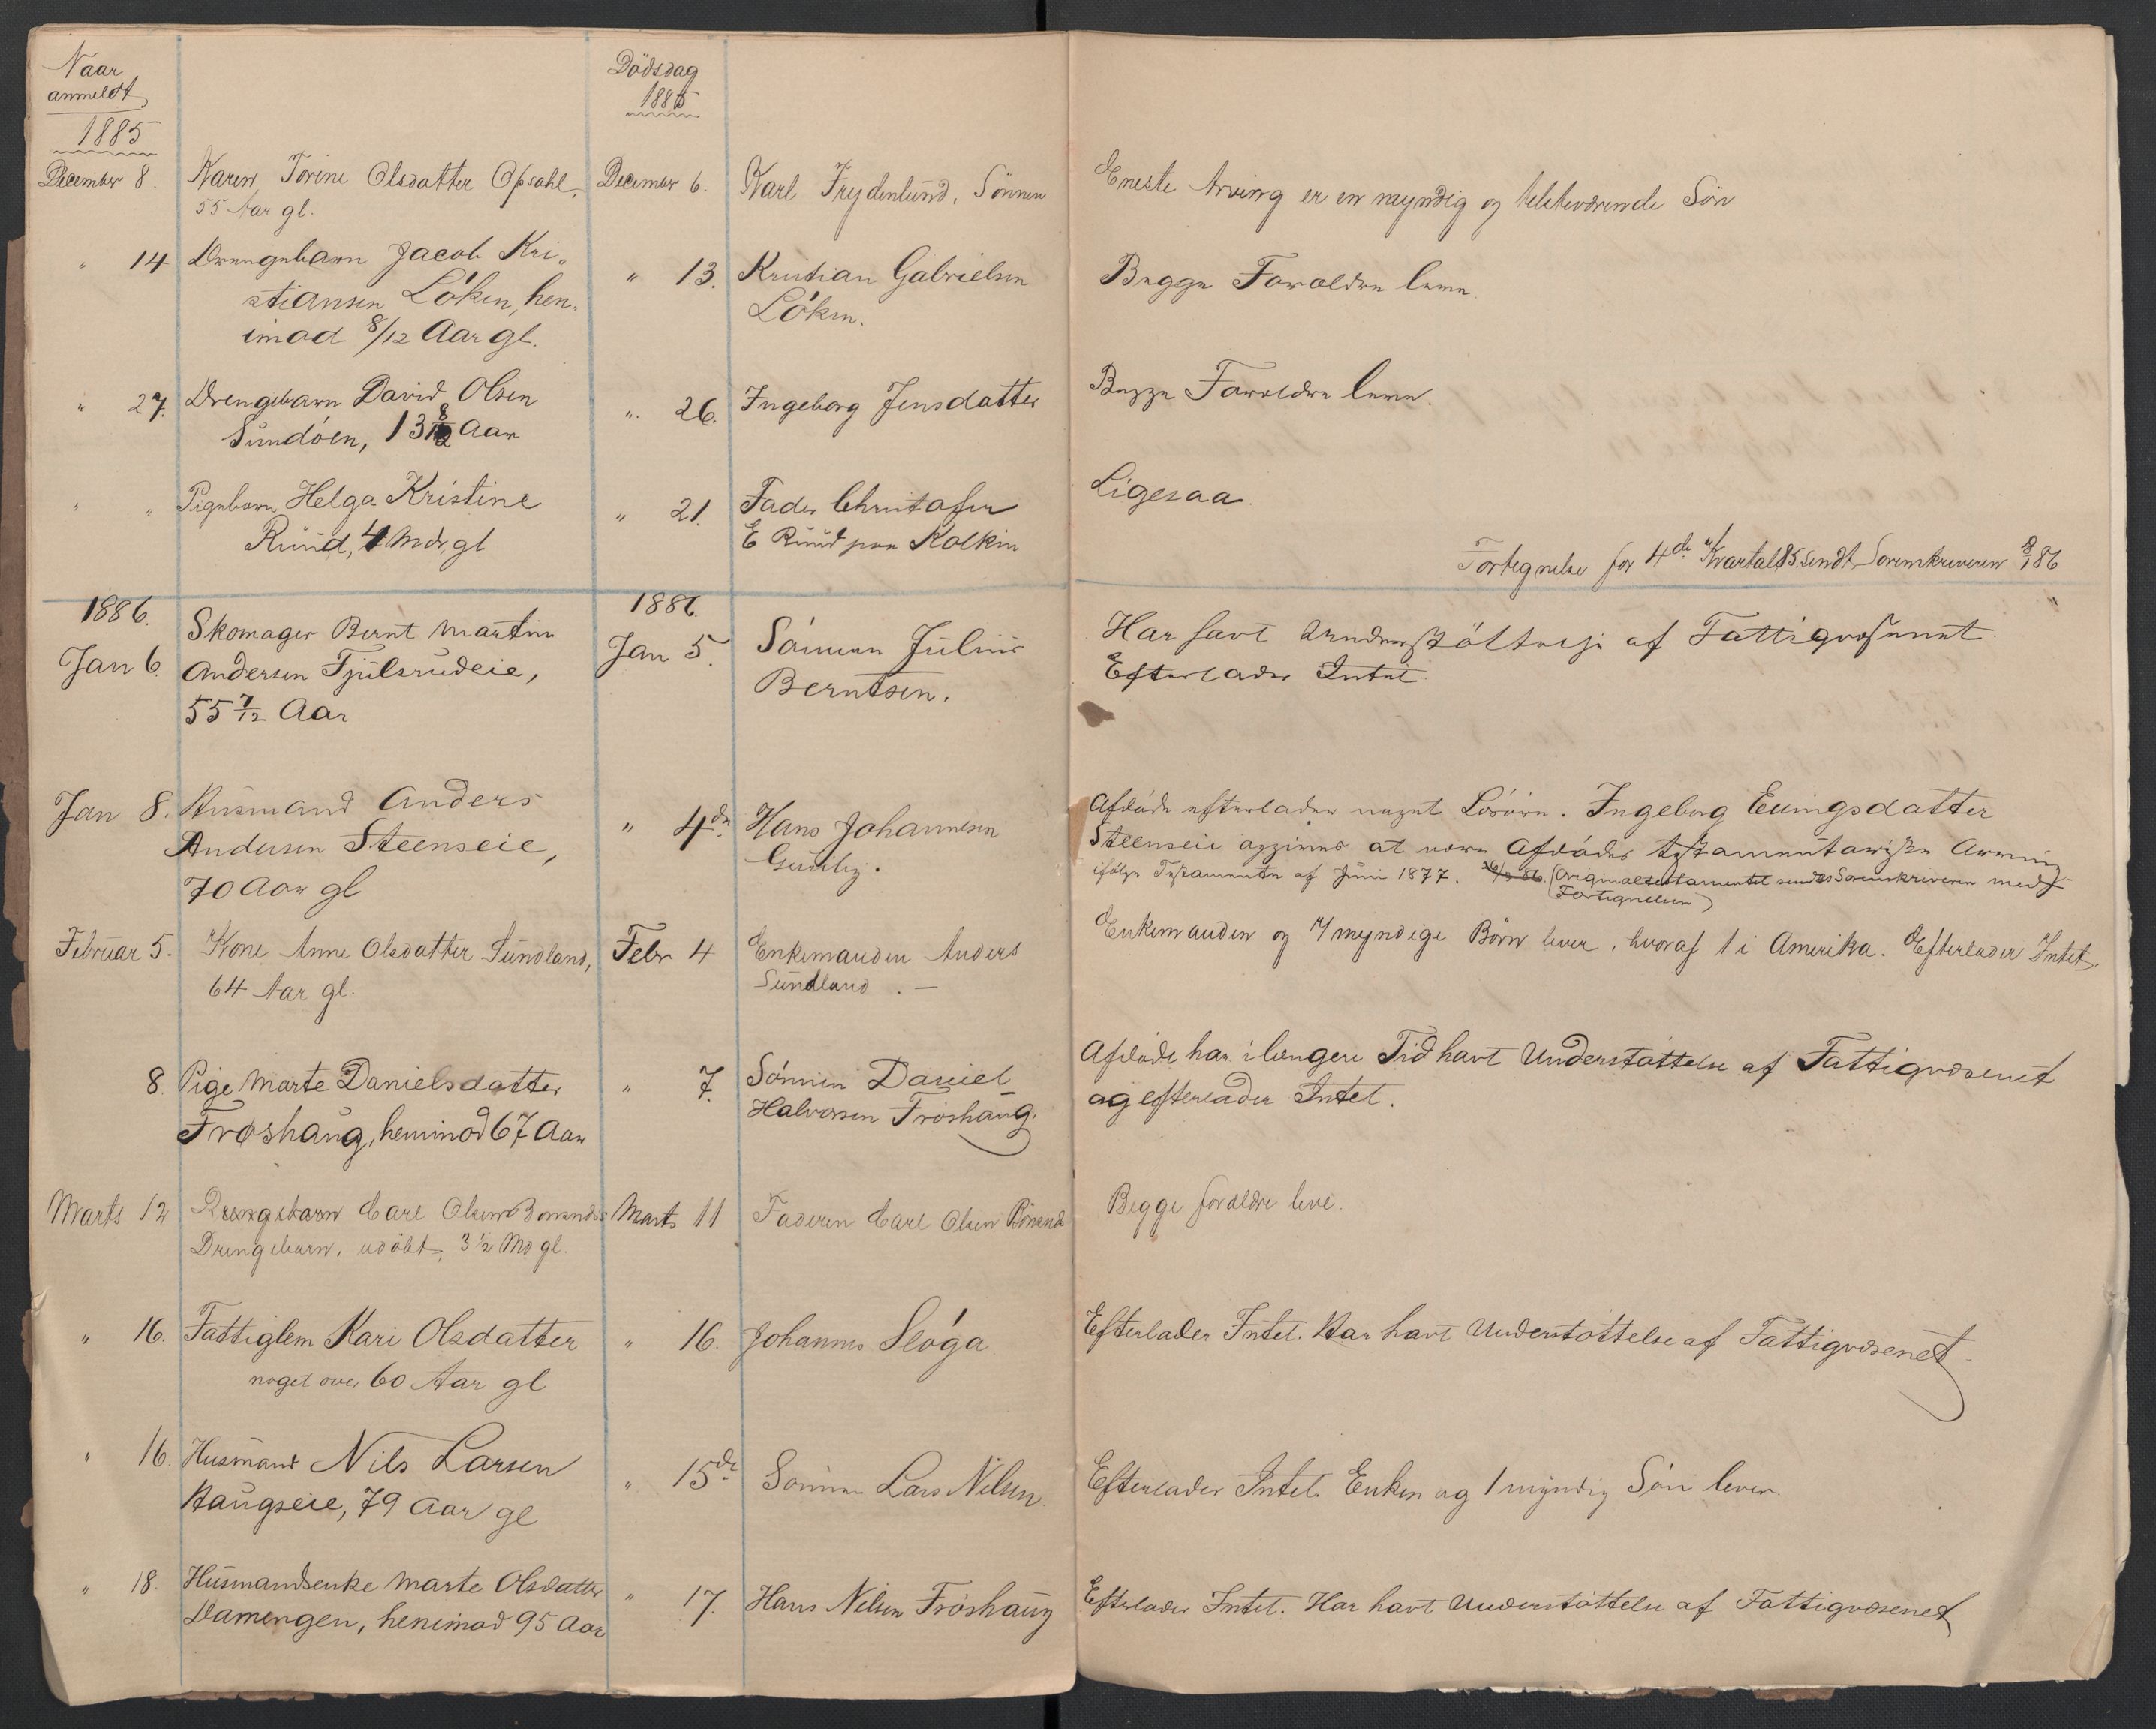 Naar
anmeldt
1885
Dödsdag
1885
December 8.
Karen Torine Olsdatter Opsahl,
55 Aar gl.
December 6.
Karl Frydenlund, Sönnen
Eneste Arving er en myndig og tilstedeværende Sön
" 14
Drengebarn Jacob Kri-
stiansen Löken, hen-
imod 8/12 Aar gl.
" 13.
Kristian Gabrielsen
Löken.
Begge Forældre leve.
" 27.
Drengebarn David Olsen
Sundöen, 13 8/12 Aar
" 26.
Ingeborg Jensdatter
Begge Forældre leve.
" "
Pigebarn Helga Kristine
Ruud, 4 Mdr. gl
" 21.
Fader Christofer
E Ruud paa Kolkin
Ligesaa.
Fortegnelse for 4de Kvartal 85 sendt Sorenskriveren 2/1 86
1886.
Jan 6.
Skomager Bernt Martin
Andersen Fjulsrudeie,
55 7/12 Aar
1886.
Jan 5.
Sönnen Julius
Berntsen.
Har havt Understöttelse af Fattigvæsenet.
Efterlader Intet.
Jan 8.
Husmand Anders
Andersen Steenseie,
70 Aar gl
" 4de
Hans Johannesen
Afdöde efterlader noget Lösöre. Ingeborg Evingsdatter
Steenseie opgives at være Afdödes testamentariske Arving
ifölge Testamente af Juni 1877. (Originaltestamentet sendes Sorenskriveren med
Fortegnelsen)
Februar 5.
Kone Anne Olsdatter Sundland,
64 Aar gl.
Febr 4
Enkemanden Anders
Sundland. —
Enkemanden og 4 myndige Börn lever, hvoraf 1 i Amerika. Efterlader Intet.
8.
Pige Marte Danielsdatter
Fröshaug, henimod 67 Aar
" 7.
Sönnen Daniel
Halvorsen Fröshaug.
Afdöde har i længere Tid havt Understöttelse af Fattigvæsenet
og efterlader Intet.
Marts 12
Drengebarn Carl Olsen
Drengebarn, udöbt, 3 1/2 Md gl.
Marts 11
Faderen Carl Olsen
Begge forældre leve.
" 16.
Fattiglem Kari Olsdatter
noget over 60 Aar gl
" 16.
Johannes Slöga
Efterlader Intet. Har havt Understöttelse af Fattigvæsenet.
" 16.
Husmand Nils Larsen
Haugseie, 79 Aar gl
" 15de
Sönnen Lars Nilsen
Efterlader Intet. Enken og 1 myndig Sön lever.
" 18.
Husmandsenke Marte Olsdatter
Damengen, henimod 95 Aar
" 17.
Hans Nilsen Fröshaug
Efterlader Intet. Har havt Understöttelse af Fattigvæsenet